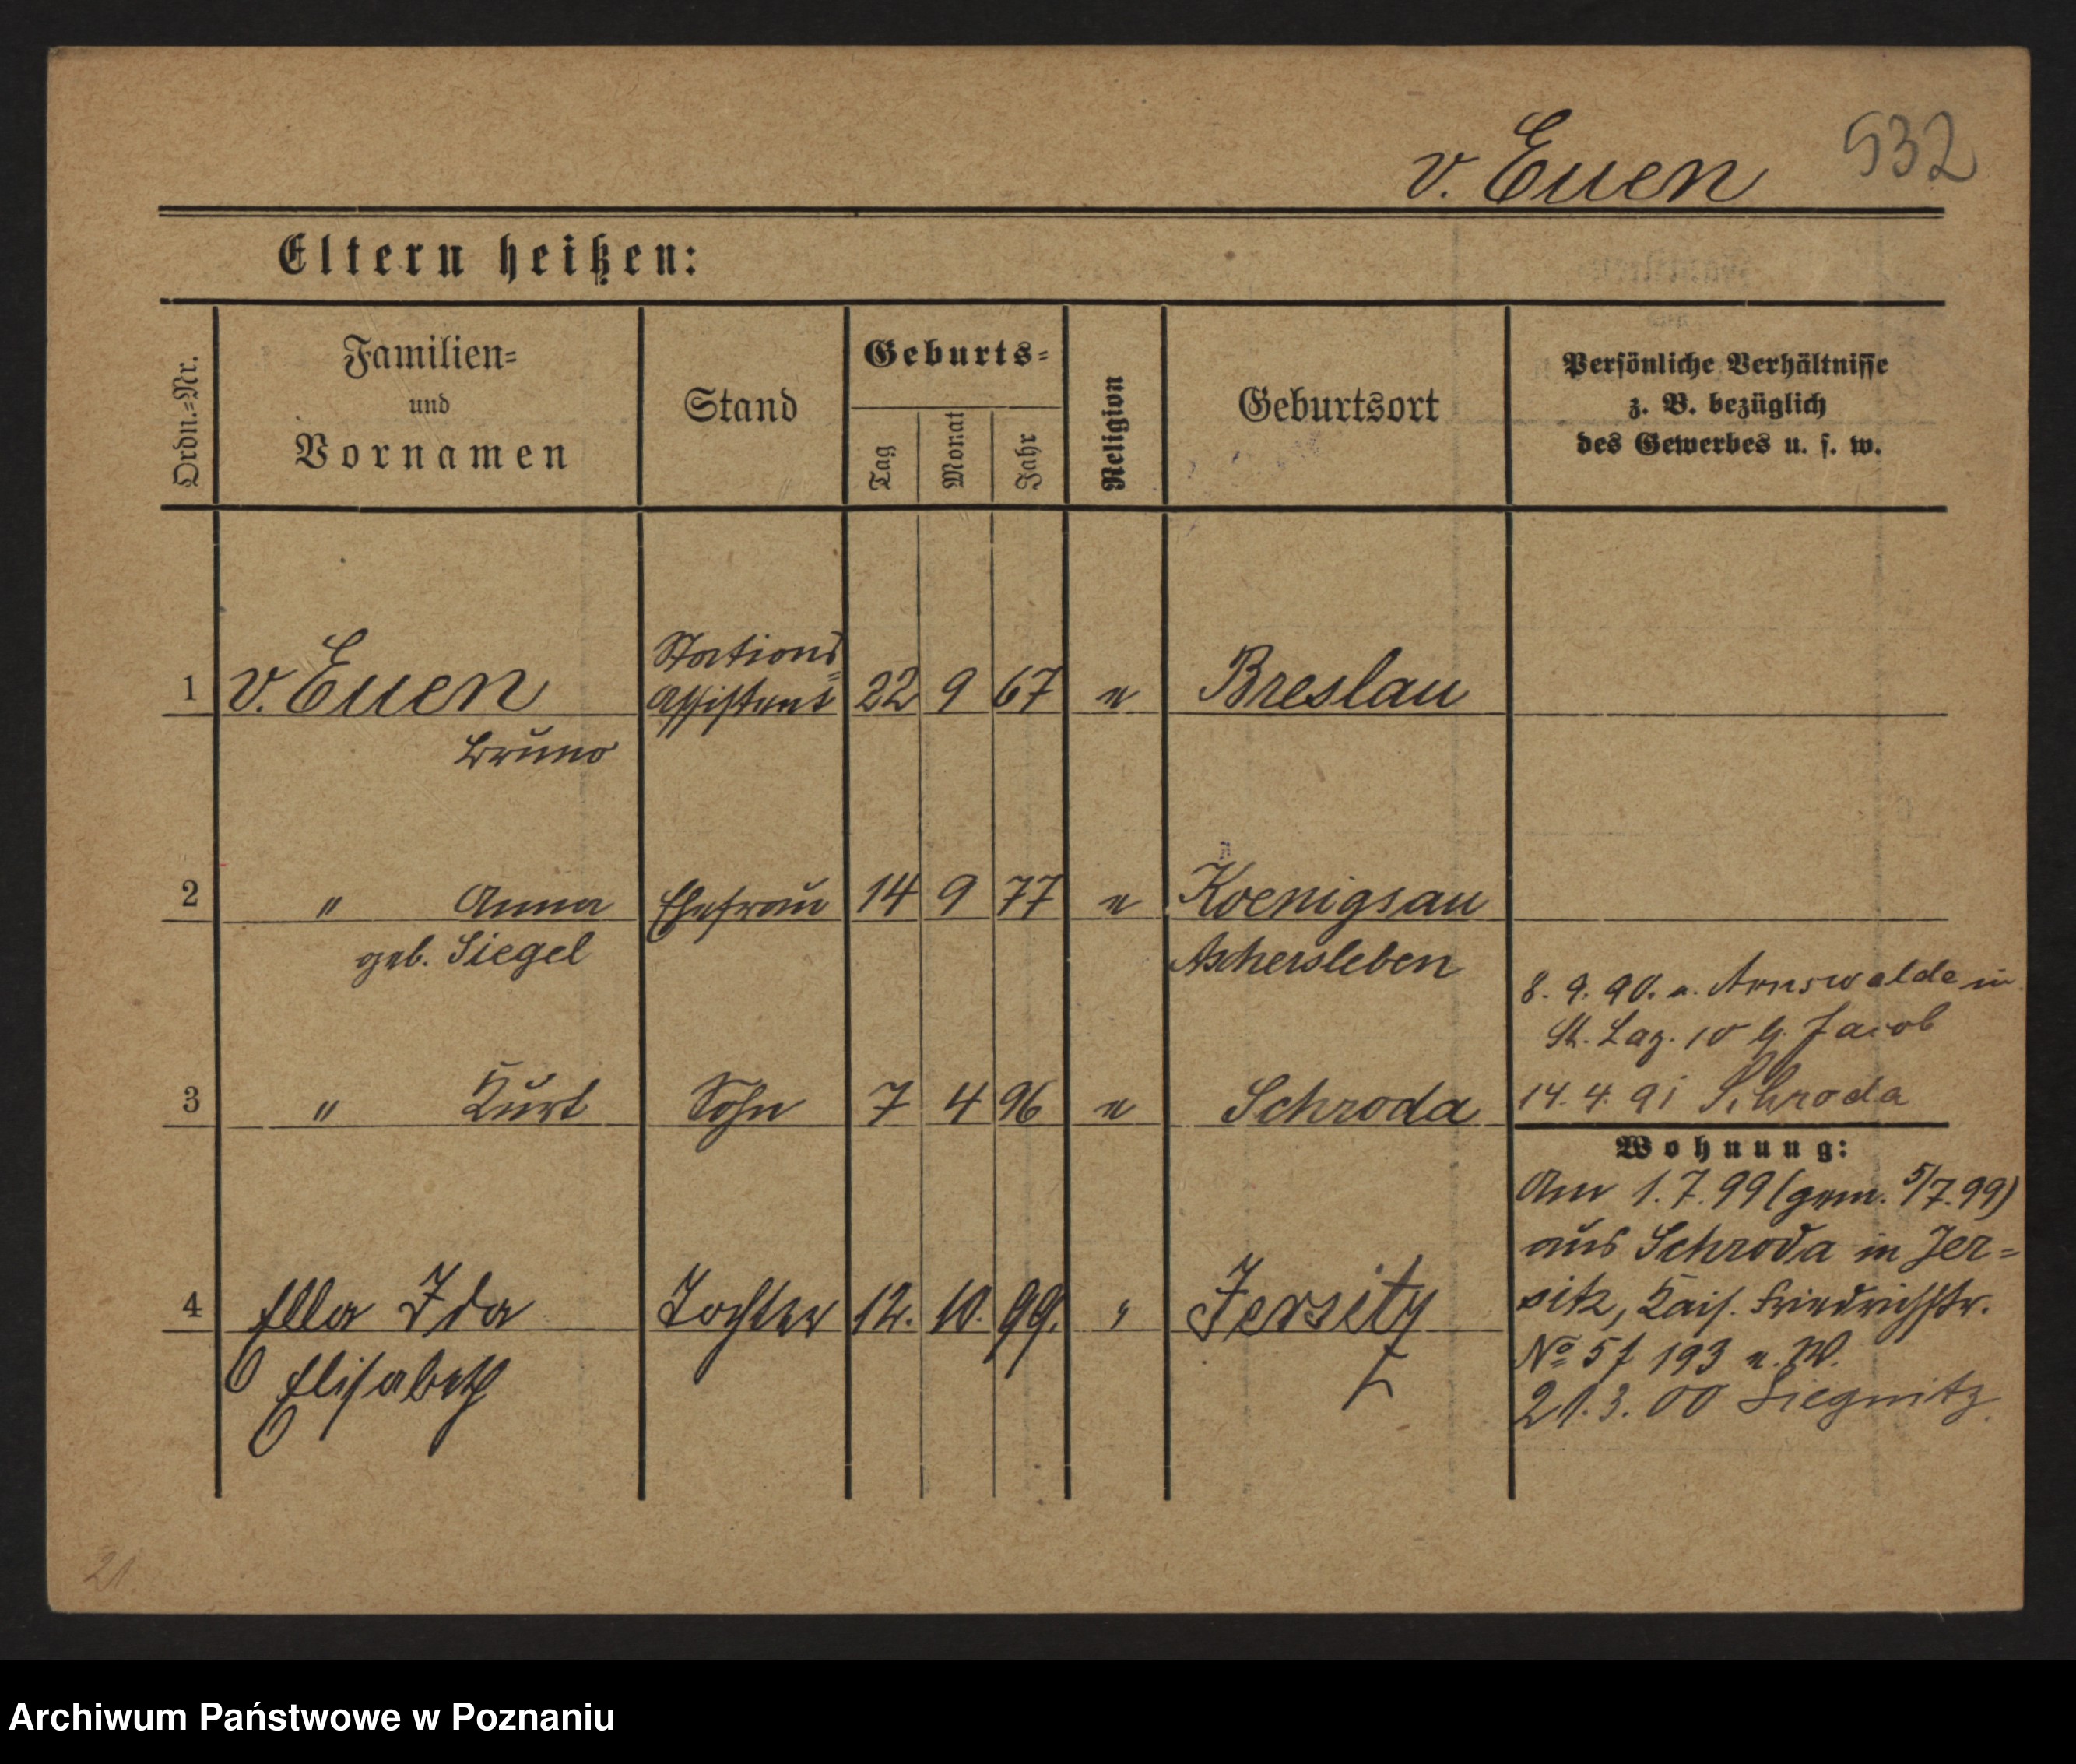 v. Euen 532
Eltern heißen:
Ordn.=Nr.
Familien=
und
Vornamen
Stand
Geburts=
Tag
Monat
Jahr
Religion
Geburtsort
Persönliche Verhältnisse
z. B. bezüglich
des Gewerbes u. s. w.
1 v. Euen Stations= Assistent 22 9 67 e Breslau
Bruno
2 " Anna Ehefrau 14 9 77 e Koenigsau
geb. Siegel Aschersleben
8. 9. 90. a. Arnswalde in
St. Laz. 10 b. Jacob
3 " Kurt Sohn 7 4 96 e Schroda 14. 4. 91 Schroda
Wohnung:
Am 1. 7. 99 (gem. 5/7. 99)
aus Schroda in Jer=
sitz, Kais. Friedrichstr.
No 5 f 193 e. W.
21. 3. 00 Liegnitz
4 Ella Ida Tochter 12. 10. 99. " Jersitz
Elisabeth
21.
Archiwum Państwowe w Poznaniu